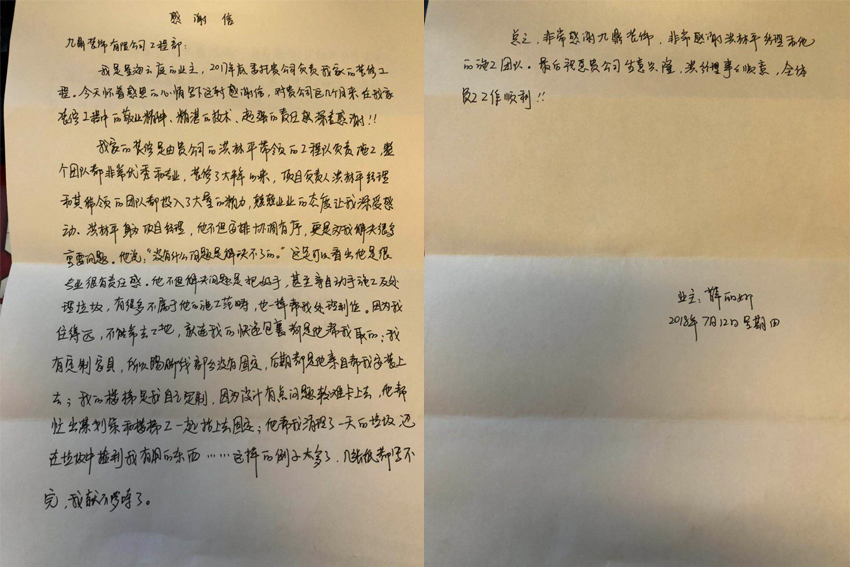 感谢信
九鼎装饰有限公司工程部：
我是星海云庭的业主，2017年底委托贵公司负责我家的装修工
程。今天怀着感恩的心情写下这封感谢信，对贵公司这几个月来在我家
装修工程中的敬业精神、精湛的技术、超强的责任致深表感谢！！
我家的装修是由贵公司的洪林平带领的工程队负责施工，整
个团队都非常优秀和专业，装修了大半年以来，项目负责人洪林平经理
和其带领的团队都投入了大量的精力，兢兢业业的态度让我深受感
动。洪林平身为项目经理，他不但安排协调有序，更是为我解决很多
重要问题。他说："没有什么问题是解决不了的。"这足可以看出他是很
专业很有责任感。他不但解决问题是把好手，甚至亲自动手施工及处
理垃圾，有很多不属于他的施工范畴，也一样帮我处理到位。因为我
住得远，不能常去工地，就连我的快递包裹都是他帮我取的；我
有定制家具，所以踢脚线部分没有固定，后期都是他亲自帮我安装上
去；我的楼梯是我自主定制，因为设计有点问题较难卡上去，他帮
忙出谋划策和楼梯工一起抬上去固定；他帮我清理了一天的垃圾，还
在垃圾中捡到我有用的东西……这样的例子太多了，几张纸都写不
完，我就不啰嗦了。
总之，非常感谢九鼎装饰，非常感谢洪林平经理和他
的施工团队。最后祝愿贵公司生意兴隆，洪经理事事顺意，全体
员工工作顺利！！
业主：薛丽娜
2018年7月12日 星期四